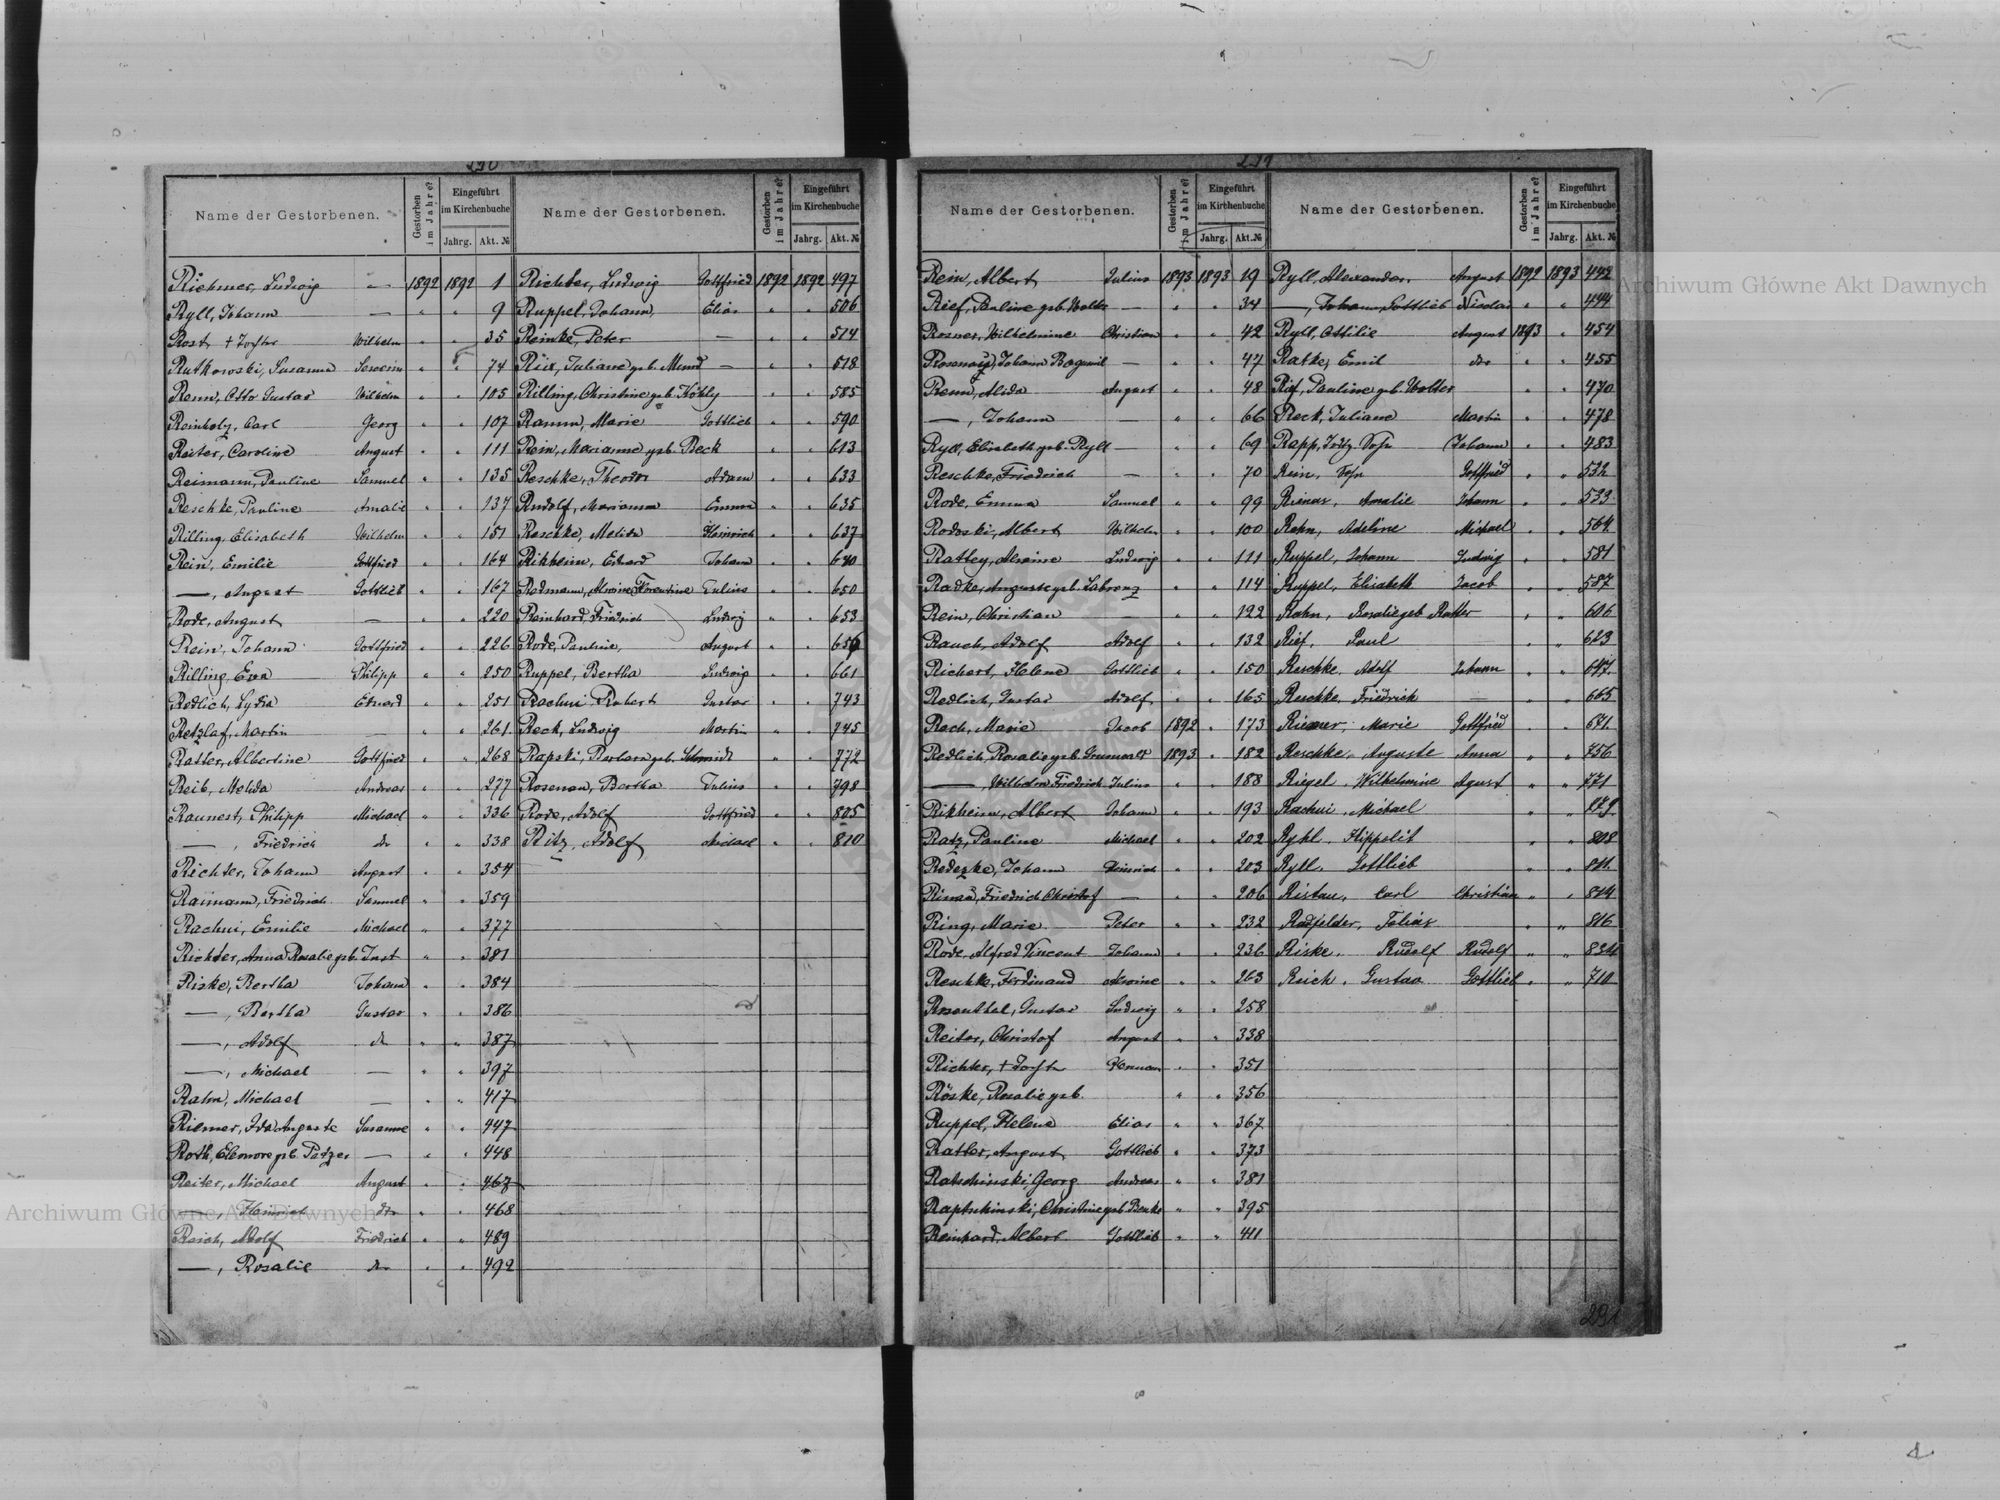 290
Name der Gestorbenen. Gestorben im Jahre? Eingeführt im Kirchenbuche Jahrg. Akt. №
Riemer, Ludwig — 1892 1892 1
Ryll, Johann — " " 9
Rost, † Tochter Wilhelm " " 35
Rutkowski, Susanna Severin " " 74
Renn, Otto Gustav Wilhelm " " 105
Reinholz, Carl Georg " " 107
Reiter, Caroline August " " 111
Reimann, Pauline Samuel " " 135
Reschke, Pauline Amalie " " 137
Rilling, Elisabeth Wilhelm " " 151
Rein, Emilie Gottfried " " 164
—, August Gottlieb " " 167
Rode, August — " " 220
Rein, Johann Gottfried " " 226
Rilling, Eva Philipp " " 250
Redlich, Lydia Eduard " " 251
Retzlaf, Martin — " " 261
Ratter, Albertine Gottfried " " 268
Reib, Melida Andreas " " 277
Raunest, Philipp Michael " " 336
—, Friedrich do " " 338
Richter, Johann August " " 354
Raimann, Friedrich Samuel " " 359
Rachui, Emilie Michael " " 377
Richter, Anna Rosalie geb. Just " " 381
Riske, Bertha Johann " " 384
—, Bertha Gustav " " 386
—, Adolf do " " 387
—, Michael — " " 397
Rahn, Michael — " " 417
Riemer, Ida Auguste Susanne " " 447
Roth, Eleonore geb. Patzer — " " 448
Reiter, Michael August " " 467
—, do " " 468
Reich, Adolf Friedrich " " 489
—, Rosalie do " " 492
Name der Gestorbenen. Gestorben im Jahre? Eingeführt im Kirchenbuche Jahrg. Akt. №
Richter, Ludwig Gottfried 1892 1892 497
Ruppel, Johann, Elias " " 506
Reinke, Peter — " " 514
Juliane geb. Mund — " " 518
Rilling, Christine geb. " " 585
Ramm, Marie Gottlieb " " 590
Rein, Marianne geb. Beck " " 613
Reschke, Theodor Adam " " 633
Rudolf, Marianna Emma " " 635
Reschke, Melida Heinrich " " 637
Rikheim, Eduard Johann " " 640
Redmann, Alwine Florentine Julius " " 650
Reinhard, Friedrich Ludwig " " 653
Rode, Pauline, August " " 656
Ruppel, Bertha Ludwig " " 661
Rachui Robert Gustav " " 743
Reck, Ludwig Martin " " 745
Rapski, Barbara geb. Schmidt " " 772
Rosenau, Bertha Julius " " 798
Rode, Adolf Gottfried " " 805
Ritz, Adolf Michael " " 810
291
Name der Gestorbenen. Gestorben im Jahre? Eingeführt im Kirchenbuche Jahrg. Akt. №
Rein, Albert Julius 1893 1893 19
Rief, Pauline geb. Wolter — " " 34
Rosner, Wilhelmine Christian " " 42
Johann Bogumil — " " 47
Renn, Alida August " " 48
—, Johann — " " 66
Ryll, Elisabeth geb. Ryll — " " 69
Reschke, Friedrich — " " 70
Rode, Emma Samuel " " 99
Rodowski, Albert Wilhelm " " 100
Rattey, Alwine Ludwig " " 111
Radke, Auguste geb. Labrenz " " 114
Rein, Christian — " " 122
Rauch, Adolf Adolf " " 132
Richert, Helene Gottlieb " " 150
Redlich, Gustav Adolf " " 165
Rach, Marie Jacob 1892 " 173
Redlich, Rosalie geb. Grunwald 1893 " 182
—, Wilhelm Friedrich Julius " " 188
Rikheim, Albert Johann " " 193
Ratz, Pauline Michael " " 202
Redezke, Johann Heinrich " " 203
Friedrich Christof — " " 206
Ring, Marie Peter " " 232
Rode, Alfred Vincent Johann " " 236
Reschke, Ferdinand Alwine " " 263
Rosenthal, Gustav Ludwig " " 258
Reiter, Christof August " " 338
Richter, † Tochter Herman " " 351
Röske, Rosalie geb. " " 356
Ruppel, Helene Elias " " 367
Ratter, August Gottlieb " " 373
Ratschinski, Georg Andreas " " 381
Raptschinski, Christine geb. Benke " " 395
Reinhard, Albert Gottlieb " " 411
Name der Gestorbenen. Gestorben im Jahre? Eingeführt im Kirchenbuche Jahrg. Akt. №
Ryll, Alexander, August 1892 1893 442
—, Johann Gottlieb Nicolai " " 444
Ryll, Ottilie August 1893 " 454
Ratke, Emil do " " 455
Rief, Pauline geb. Wolter " " 470
Reck, Juliane Martin " " 478
Rapp, Sohn Johann " " 483
Rein, Sohn Gottfried " " 532
Riemer, Amalie Johann " " 533
Rahn, Adeline Michael " " 564
Ruppel, Johann Ludwig " " 581
Ruppel, Elisabeth Jacob " " 587
Rahn, Rosalie geb. Ratter " " 606
Rief, Paul " " 623
Reschke, Adolf Johann " " 647
Reschke, Friedrich — " " 665
Riemer, Marie Gottfried " " 671
Reschke, Auguste Anna " " 756
Riegel, Wilhelmine Agust " " 771
Rachui, Michael " "
Rykl, Hippolit " " 808
Ryll, Gottlieb " " 811
Ristau, Carl Christian " " 814
Radfelder, Tobias " " 816
Riske, Rudolf Rudolf " " 824
Reich, Gustav Gottlieb " " 710
291
Archiwum Główne Akt Dawnych
Archiwum Główne Akt Dawnych